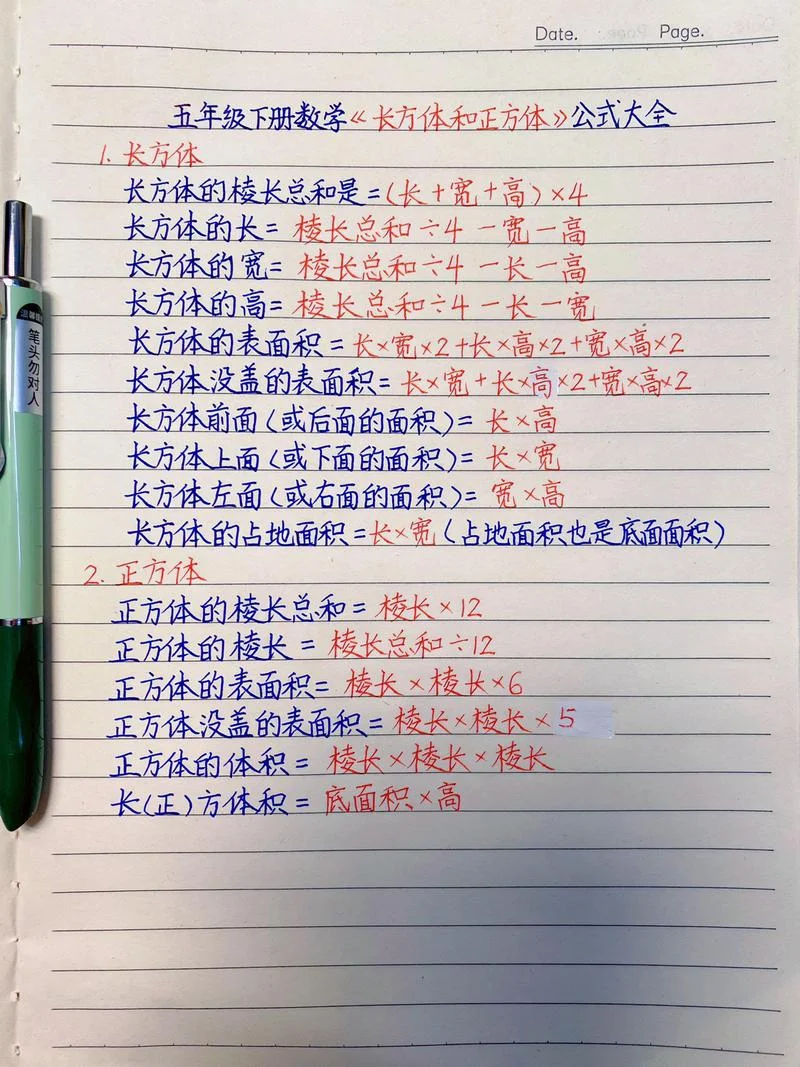 Date. Page.
五年级下册数学《长方体和正方体》公式大全
1. 长方体
长方体的棱长总和是=(长+宽+高)×4
长方体的长= 棱长总和÷4-宽-高
长方体的宽= 棱长总和÷4-长-高
长方体的高= 棱长总和÷4-长-宽
长方体的表面积=长×宽×2+长×高×2+宽×高×2
长方体没盖的表面积=长×宽+长×高×2+宽×高×2
长方体前面(或后面的面积)= 长×高
长方体上面(或下面的面积)= 长×宽
长方体左面(或右面的面积)= 宽×高
长方体的占地面积=长×宽(占地面积也是底面面积)
2. 正方体
正方体的棱长总和= 棱长×12
正方体的棱长= 棱长总和÷12
正方体的表面积= 棱长×棱长×6
正方体没盖的表面积= 棱长×棱长×5
正方体的体积= 棱长×棱长×棱长
长(正)方体积= 底面积×高
笔头勿对人